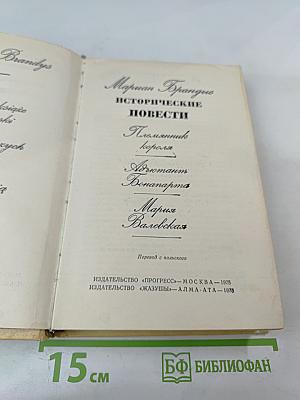 Brandys
książę
Мариан Брандыс
ИСТОРИЧЕСКИЕ
ПОВЕСТИ
Племянник
короля
Адъютант
Бонапарта
Мария
Валевская
Перевод с польского
ИЗДАТЕЛЬСТВО «ПРОГРЕСС» — МОСКВА — 1975
ИЗДАТЕЛЬСТВО «ЖАЗУШЫ» — АЛМА-АТА — 1978
15 см
БФ БИБЛИОФАН